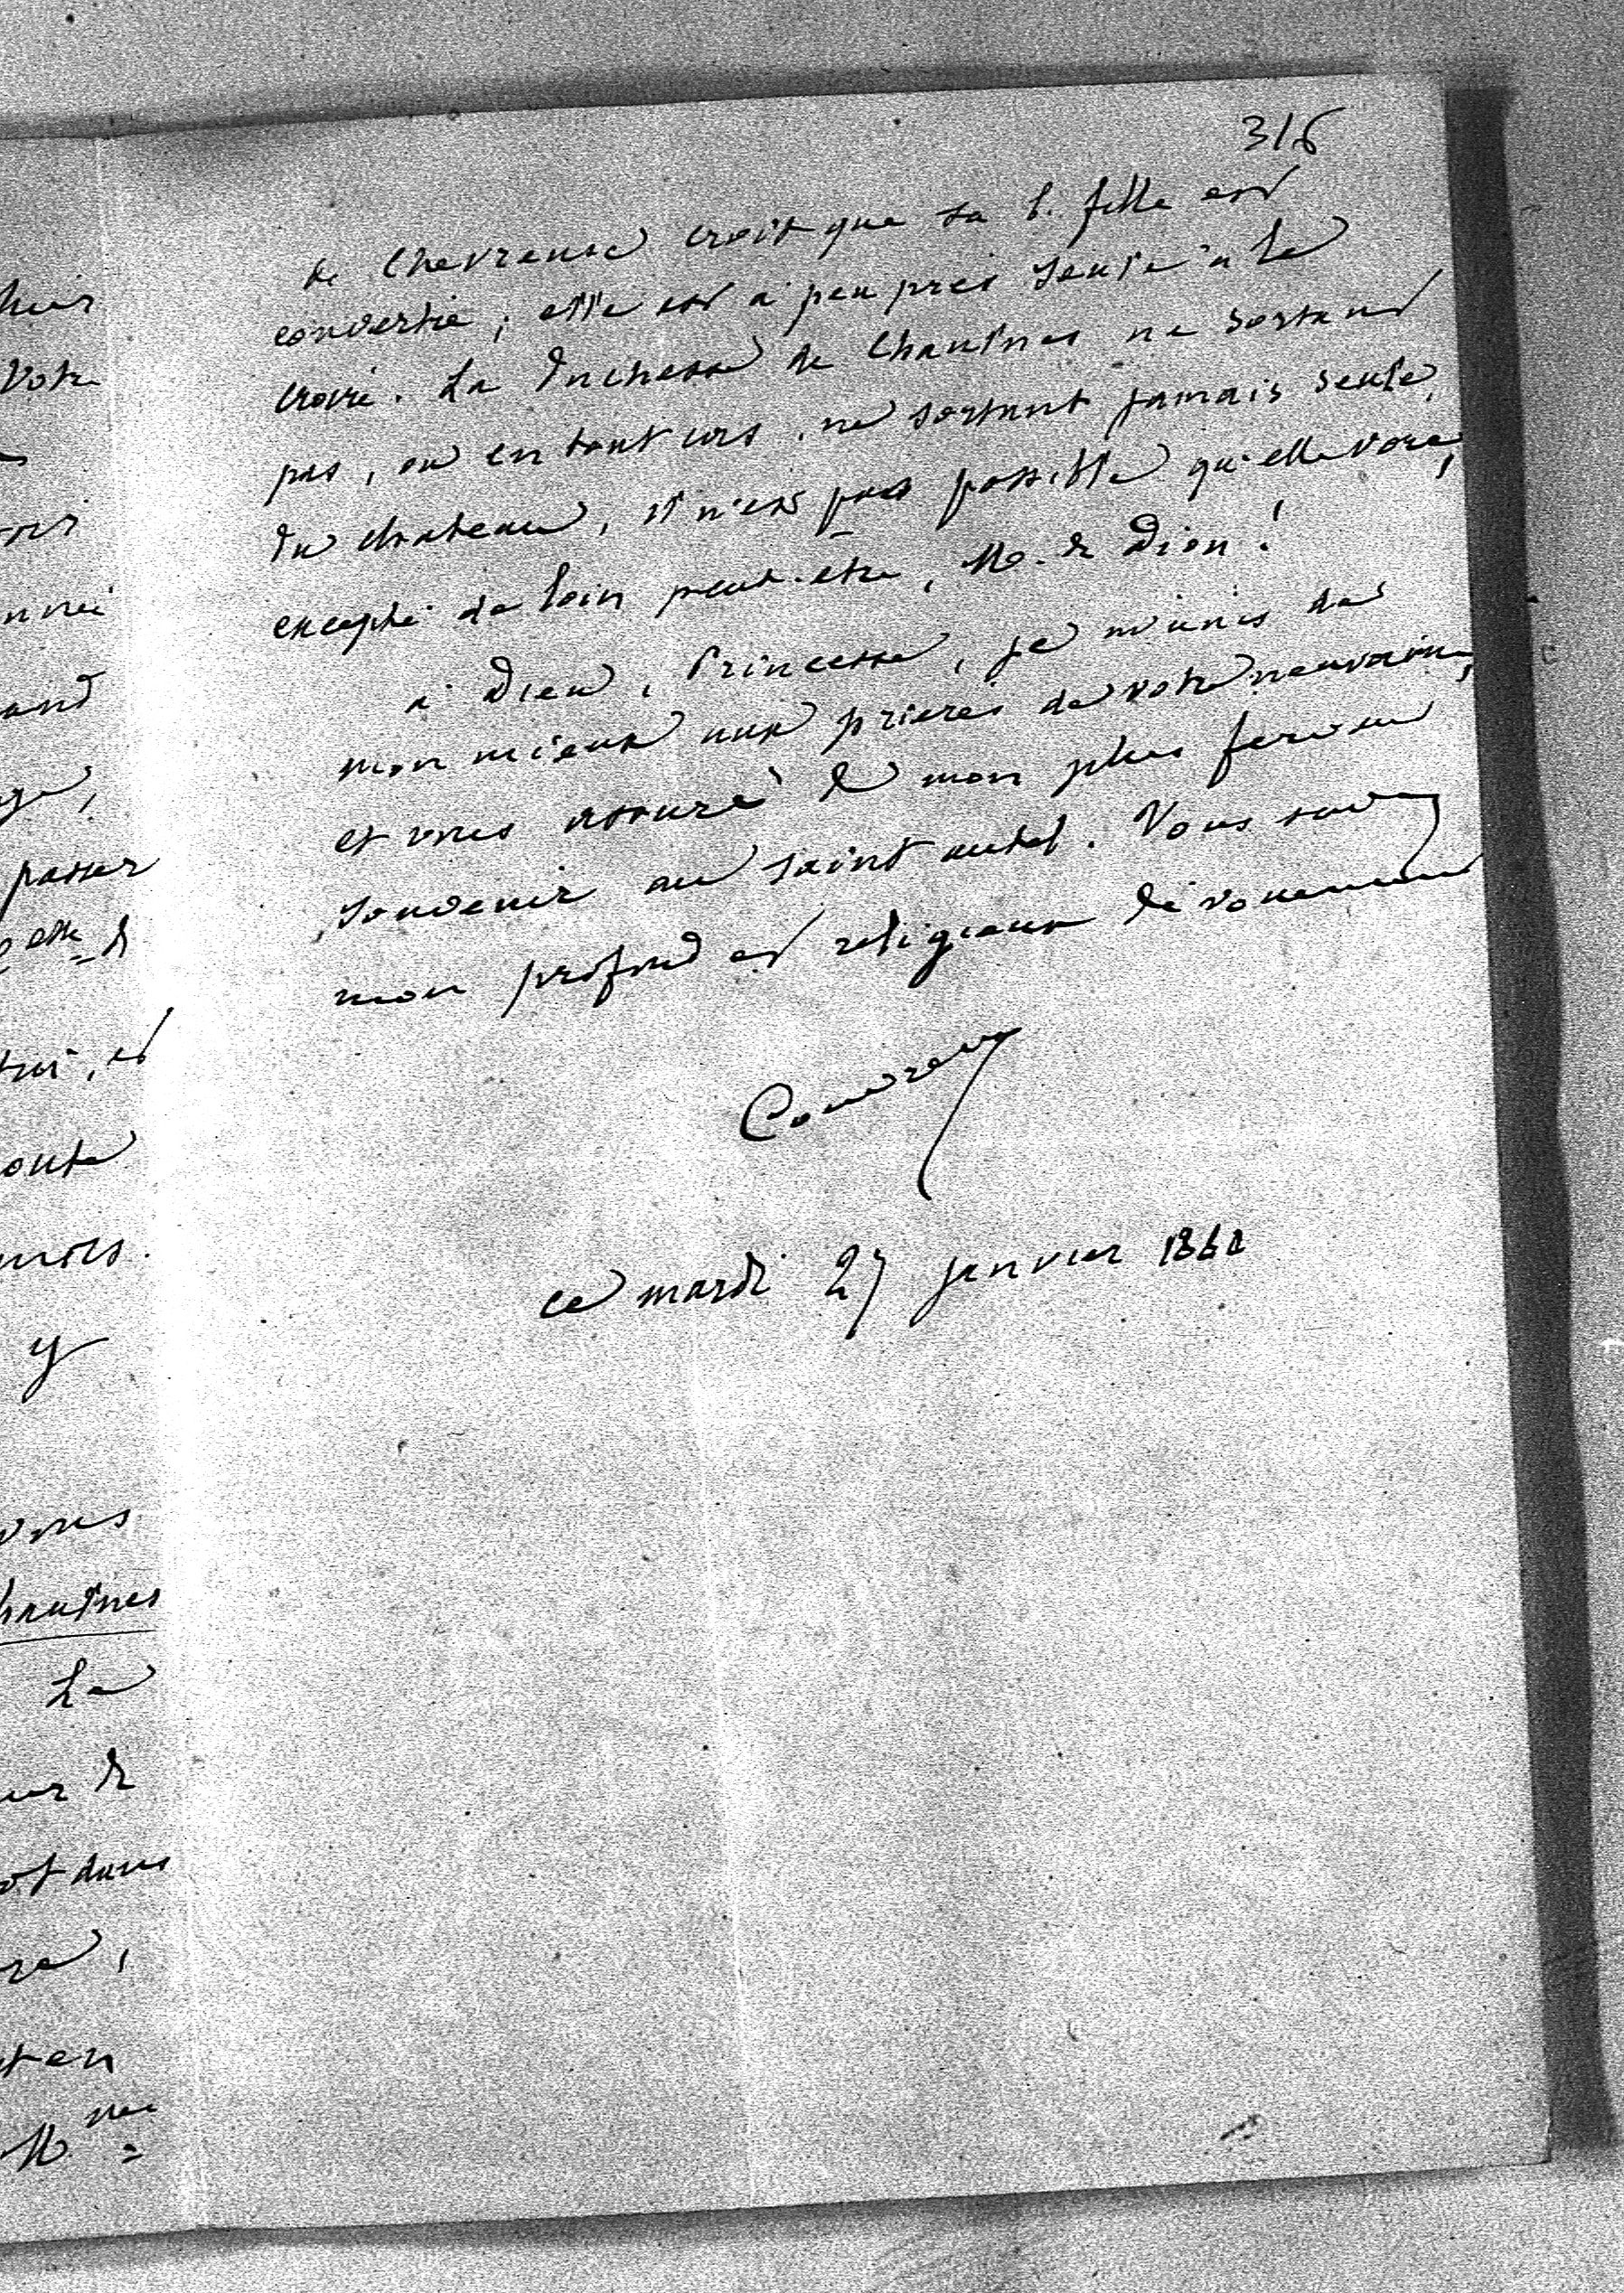 316
de Chevreuse croit que sa b. fille est
convertie ; elle est à peu près seule à le
croire. La Duchesse de Chaulnes ne sortant
pas, ou en tout cas, ne sortant jamais seule,
du chateau, il n'est pas possible qu'elle voie,
excepté de loin peut-etre, M. de Dion !
à Dieu, Princesse, je m'unis de
mon mieux aux prieres de votre neuvaine,
et vous assure de mon plus fervent
souvenir au saint autel. Vous savez
mon profond et religieux dévouement
ce mardi 27 janvier
hier
Votre
passer
, et
y
vous
haulnes
La
de
dans
en
M me